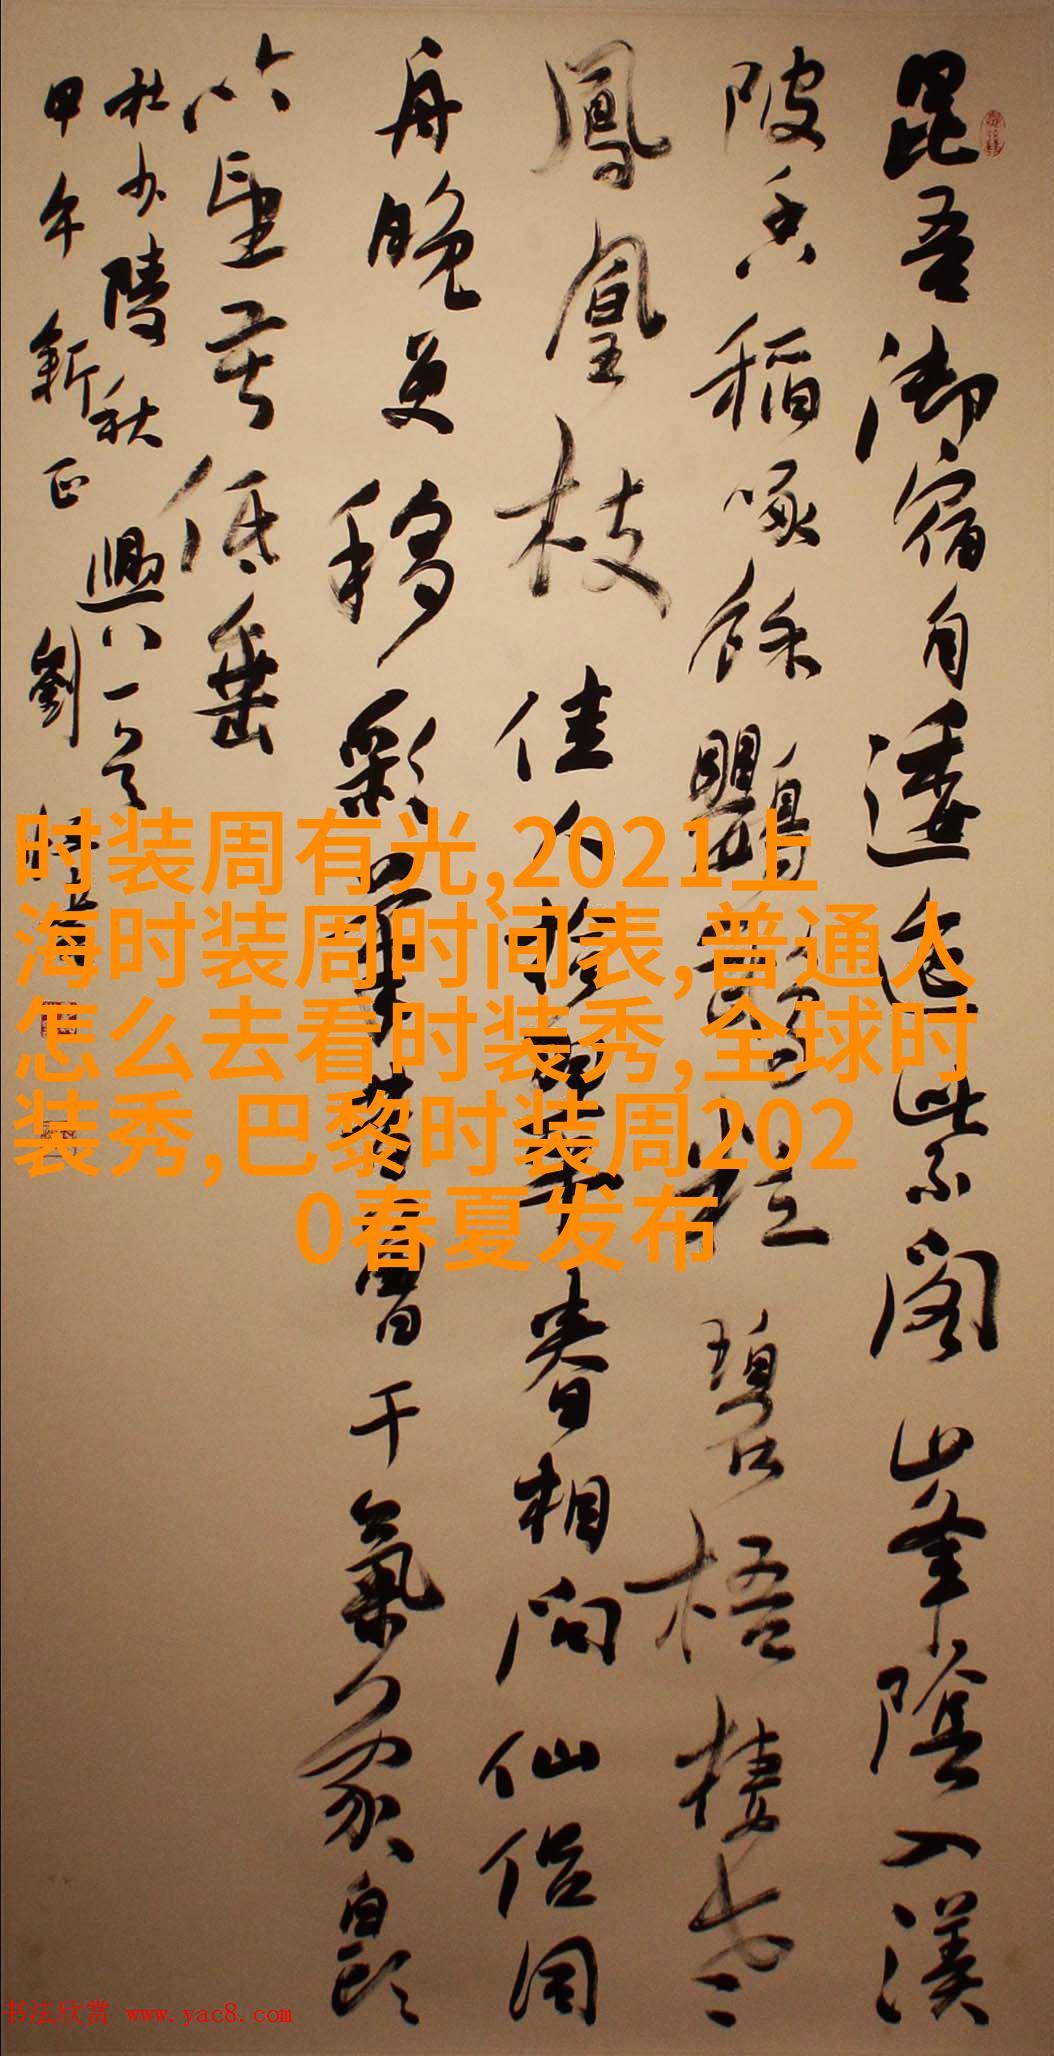 昆吾御宿自逶迤紫閣山峯陰入渼
陂香稻啄餘鸚鵡粒碧梧棲老
鳳凰枝佳人拾翠春相問仙侣同
舟晚更移彩筆昔曾干氣象白頭
吟望苦低垂
杜少陵秋興八
甲午新正 劉
时装周有光,2021上
海时装周时间表,普通人
怎么去看时装秀,全球时
装秀,巴黎时装周202
0春夏发布
书法欣赏 www.yac8.com